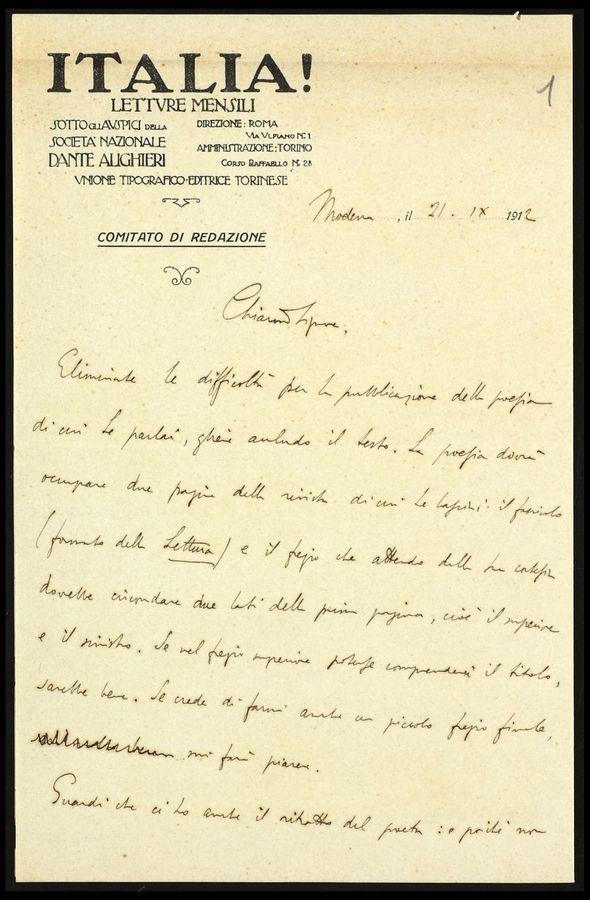 ITALIA!
LETTVRE MENSILI
SOTTO GLI AVSPICI DELLA
SOCIETA' NAZIONALE
DANTE ALIGHIERI
DIREZIONE: ROMA
VIA VLPIANO N. 1
AMMINISTRAZIONE: TORINO
CORSO RAFFAELLO N. 28
VNIONE TIPOGRAFICO-EDITRICE TORINESE
1
Modena, il 21. IX 1912
COMITATO DI REDAZIONE
Chiarmo Signore,
Eliminate le difficoltà per la pubblicazione della poesia
di cui Le parlai, gliene accludo il testo. La poesia dovrà
occupare due pagine della rivista di cui Le lasciai il fascicolo
(formato della Lettura) e il fregio che attendo dalla sua cortesia
dovrebbe circondare due lati della prima pagina, cioè il superiore
e il sinistro. Se nel fregio superiore potesse comprendersi il titolo,
sarebbe bene. Se crede di farmi anche un piccolo fregio finale,
mi farà piacere.
Guardi che ci ho anche il ritratto del poeta: e poichè non